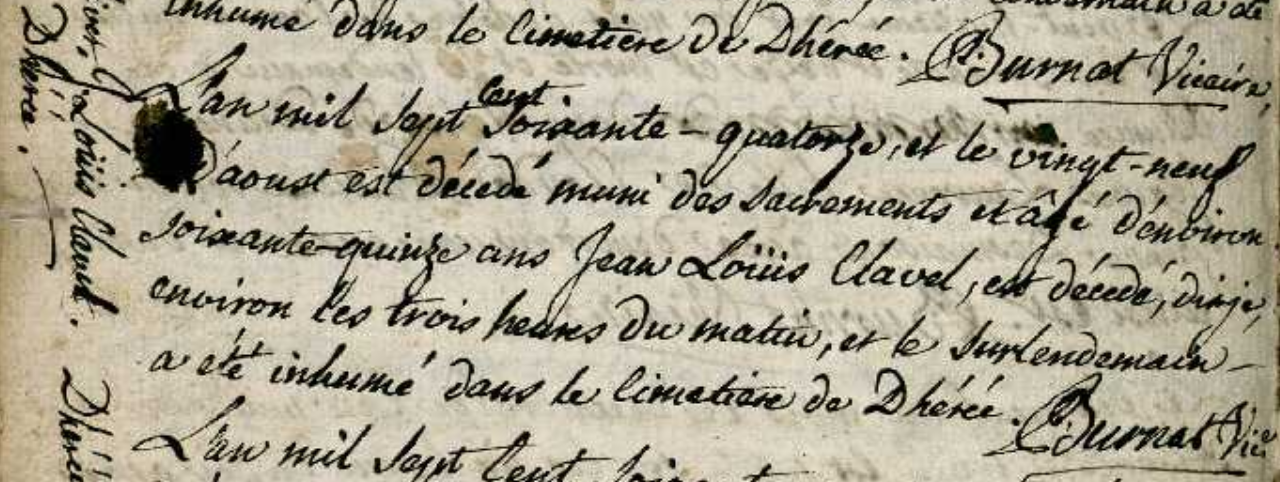 inhumé dans le Cimetiere de Dhérée. Burnat Vicaire,
L'an mil sept Cent soixante-quatorze, et le vingt-neuf
D'aoust est décedé muni des sacrements et âgé d'environ
soixante-quinze ans Jean Loüis Clavel, est décedé, dis-je,
environ les trois heures du matin, et le surlendemain-
a été inhumé dans le Cimetiere de Dhérée. Burnat Vic
L'an mil sept Cent soixant
Dhérée.
J. Loüis Clavel.
Dhérée